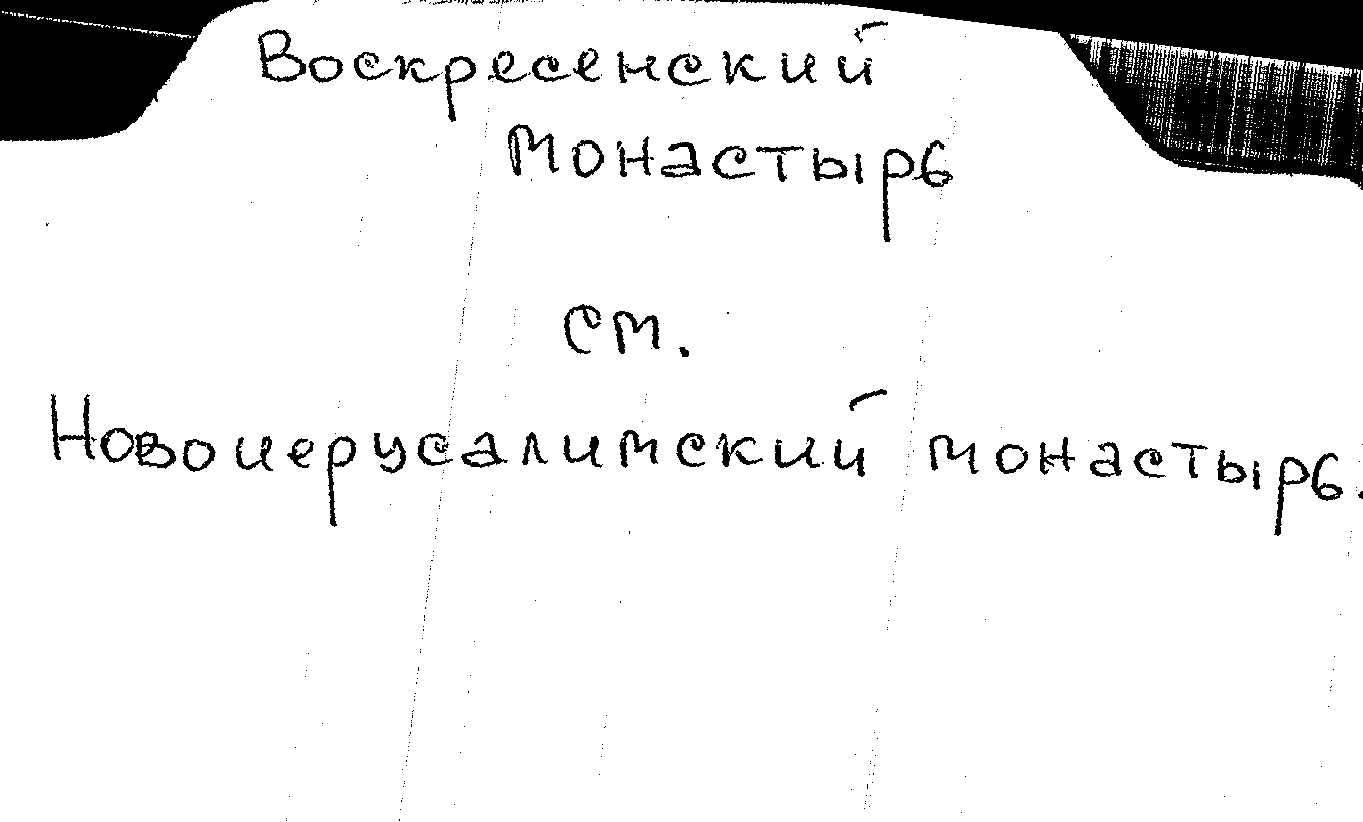 Воскресенский
монастырь
см.
Новоиерусалимский монастырь.